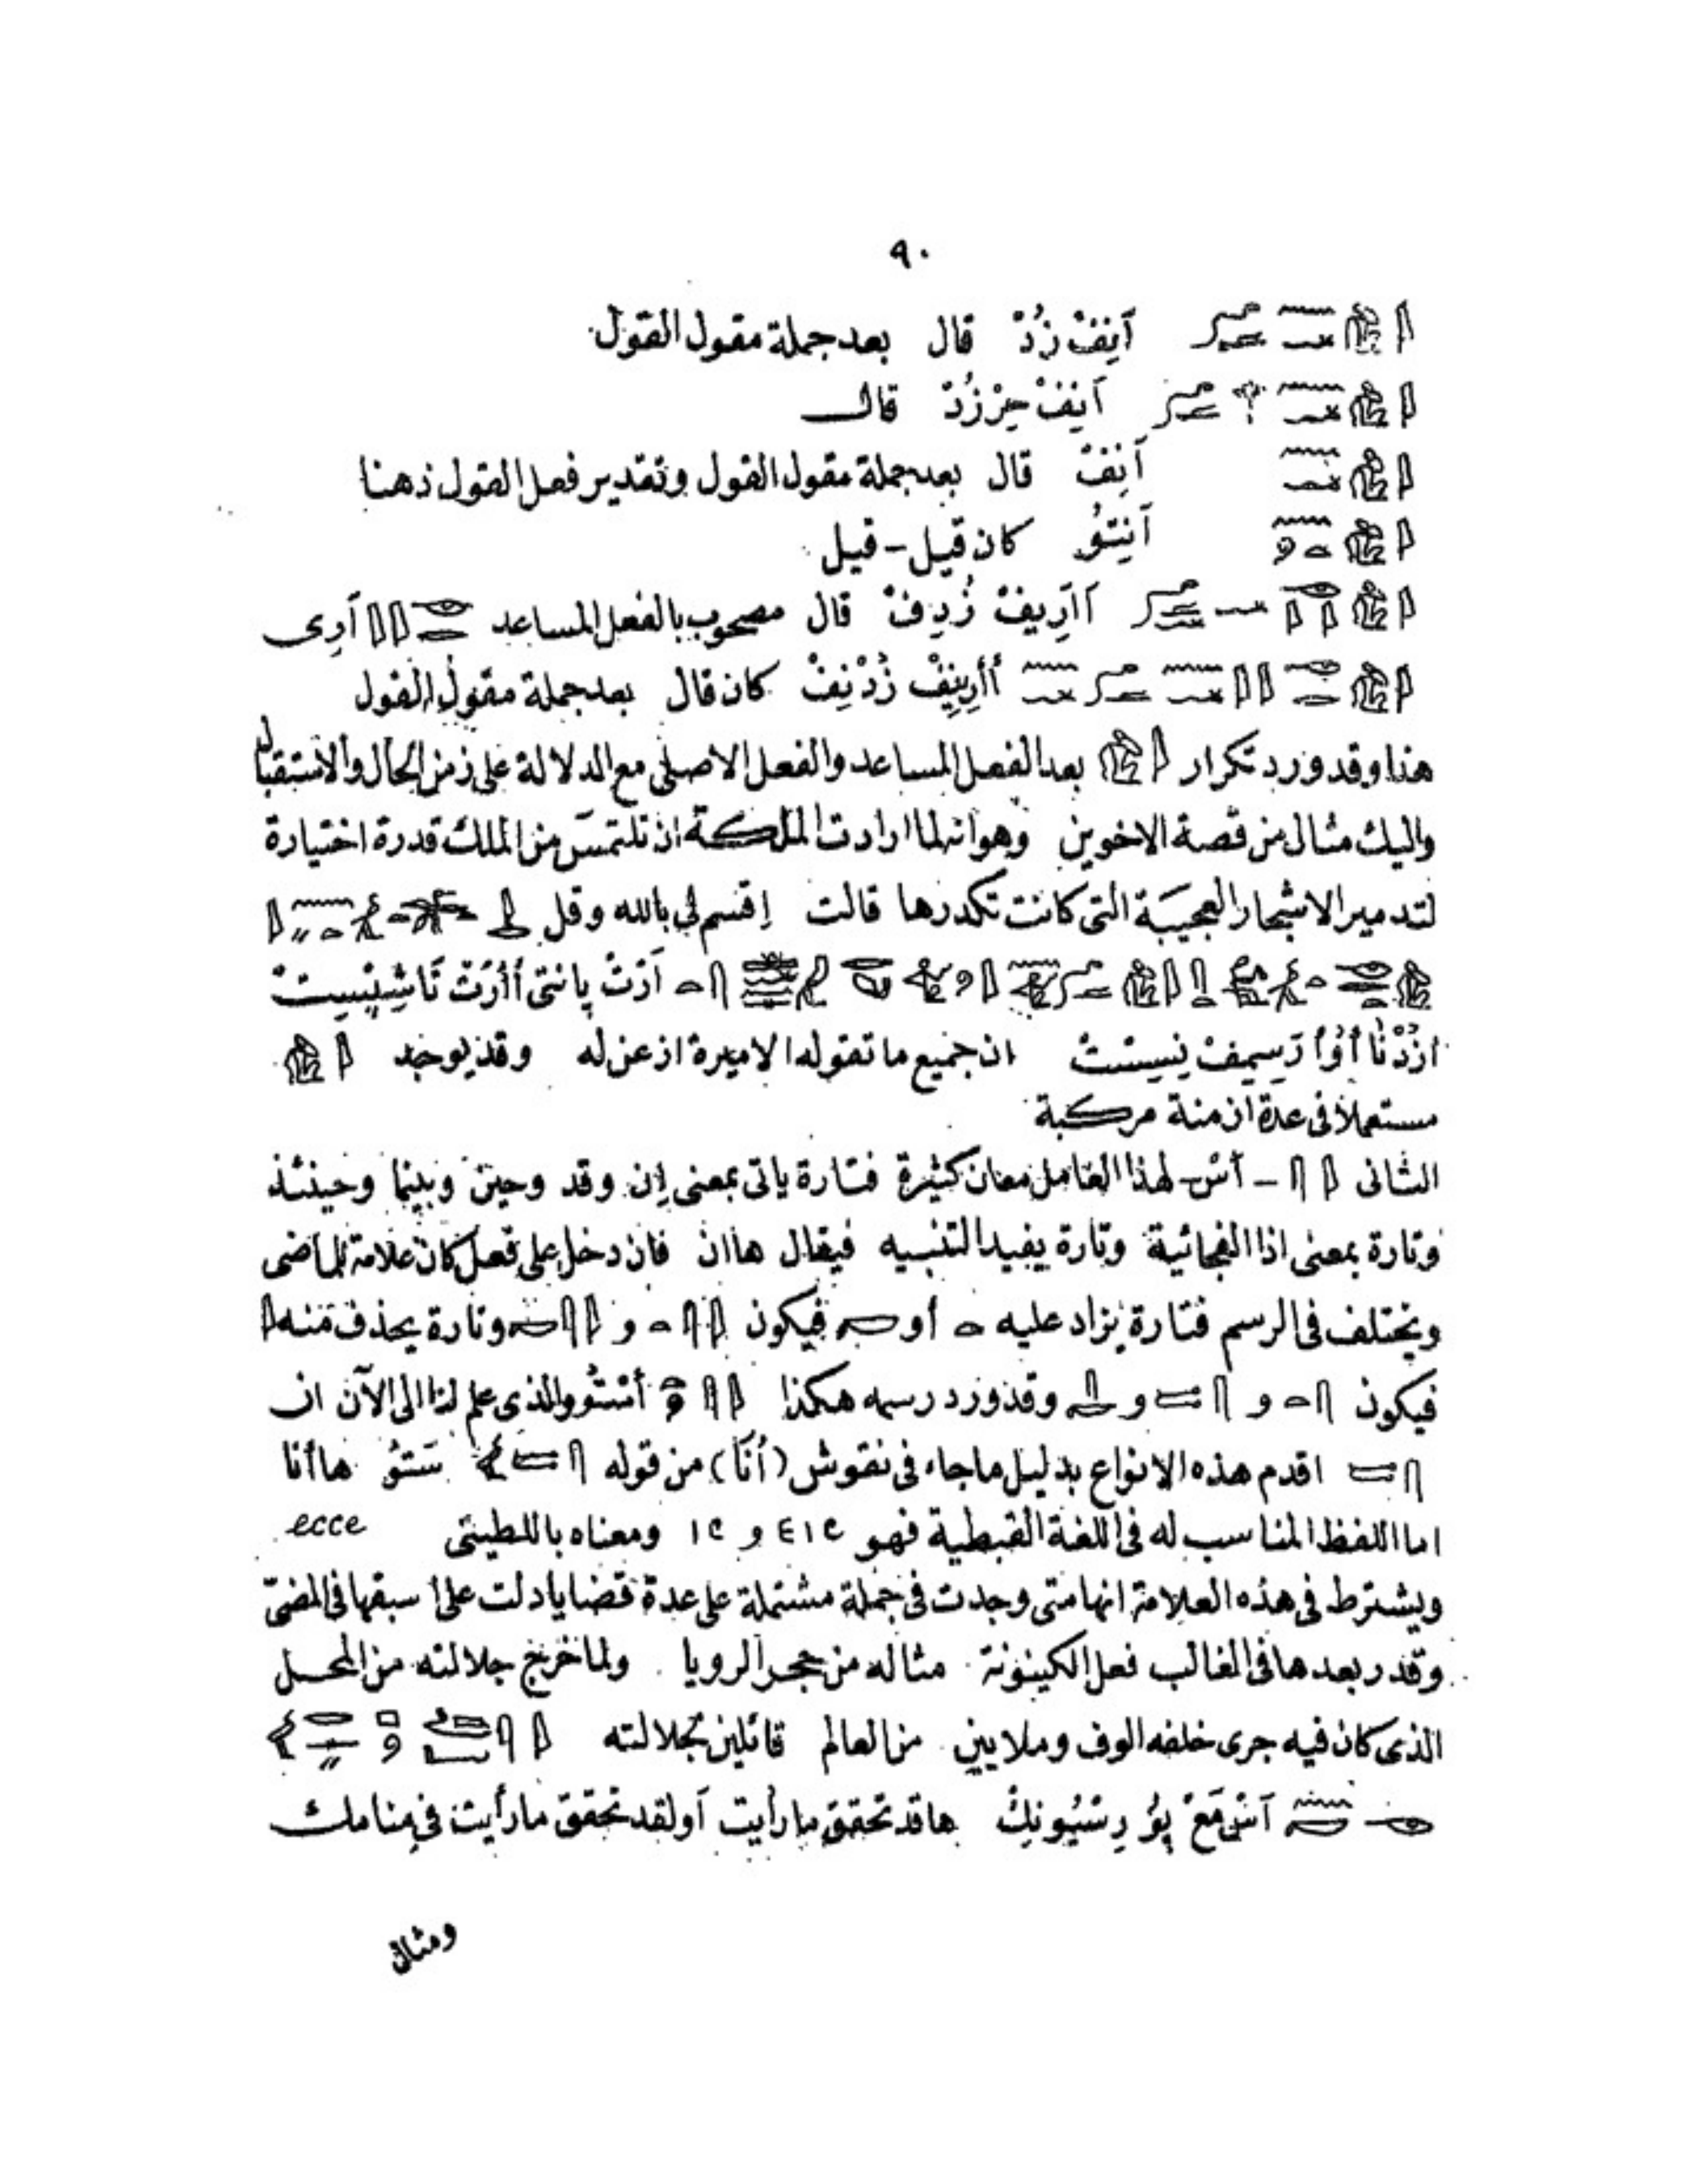 ٩٠
آنِفْ زُدْ قال بعد جملة مقول القول
آنِفْ حِرْ زُدْ قال
آنِفْ قال بعد جملة مقول القول وتقدير فعل القول ذهنا
آنِتُو كان قيل - قيل
آاَرِيفْ زُدِفْ قال مصحوب بالفعل المساعد آرِى
أأرِينِفْ زُدْنِفْ كان قال بعد جملة مقول القول
هذا وقد ورد تكرار بعد الفعل المساعد والفعل الاصلى مع الدلالة على زمن الحال والاستقبال
واليك مثال من قصة الاخوين وهو انه لما ارادت الملكة ان تلتمس من الملك قدرة اختيارة
لتدمير الاشجار العجيبة التى كانت تكدرها قالت إقسم لى بالله وقل
ان جميع ما تقوله الاميرة اذعن له وقد يوجد
مستعملا فى عدة ازمنة مركبة
الثانى - آسْ - لهذا العامل معان كثيرة فتارة ياتى بمعنى إن وقد وحين وبينما وحينئذ
وتارة بمعنى اذا الفجائية وتارة يفيد التنبيه فيقال ها ان فان دخل على فعل كان علامة للماضى
ويختلف فى الرسم فتارة يزاد عليه أو فيكون و وتارة يحذف منه
فيكون و و وقد ورد رسمه هكذا أسْتُو والذى علم لنا الى الآن ان
اقدم هذه الانواع بدليل ما جاء فى نقوش (أُنَا) من قوله سَتُو ها أنا
اما اللفظ المناسب له فى اللغة القبطية فهو ⲉⲓⲥ و ⲓⲥ ومعناه باللطينى ecce
ويشترط فى هذه العلامة انها متى وجدت فى جملة مشتملة على عدة قضايا دلت على اسبقها فى المضىّ
وقدر بعدها فى الغالب فعل الكينونة مثاله من حجر الرويا ولما خرج جلالته من المحل
الذى كان فيه جرى خلفه الوف وملايين من العالم قائلين لجلالته
ها قد تحقق ما رأيت أو لقد تحقق ما رأيت فى منامك
ومثال